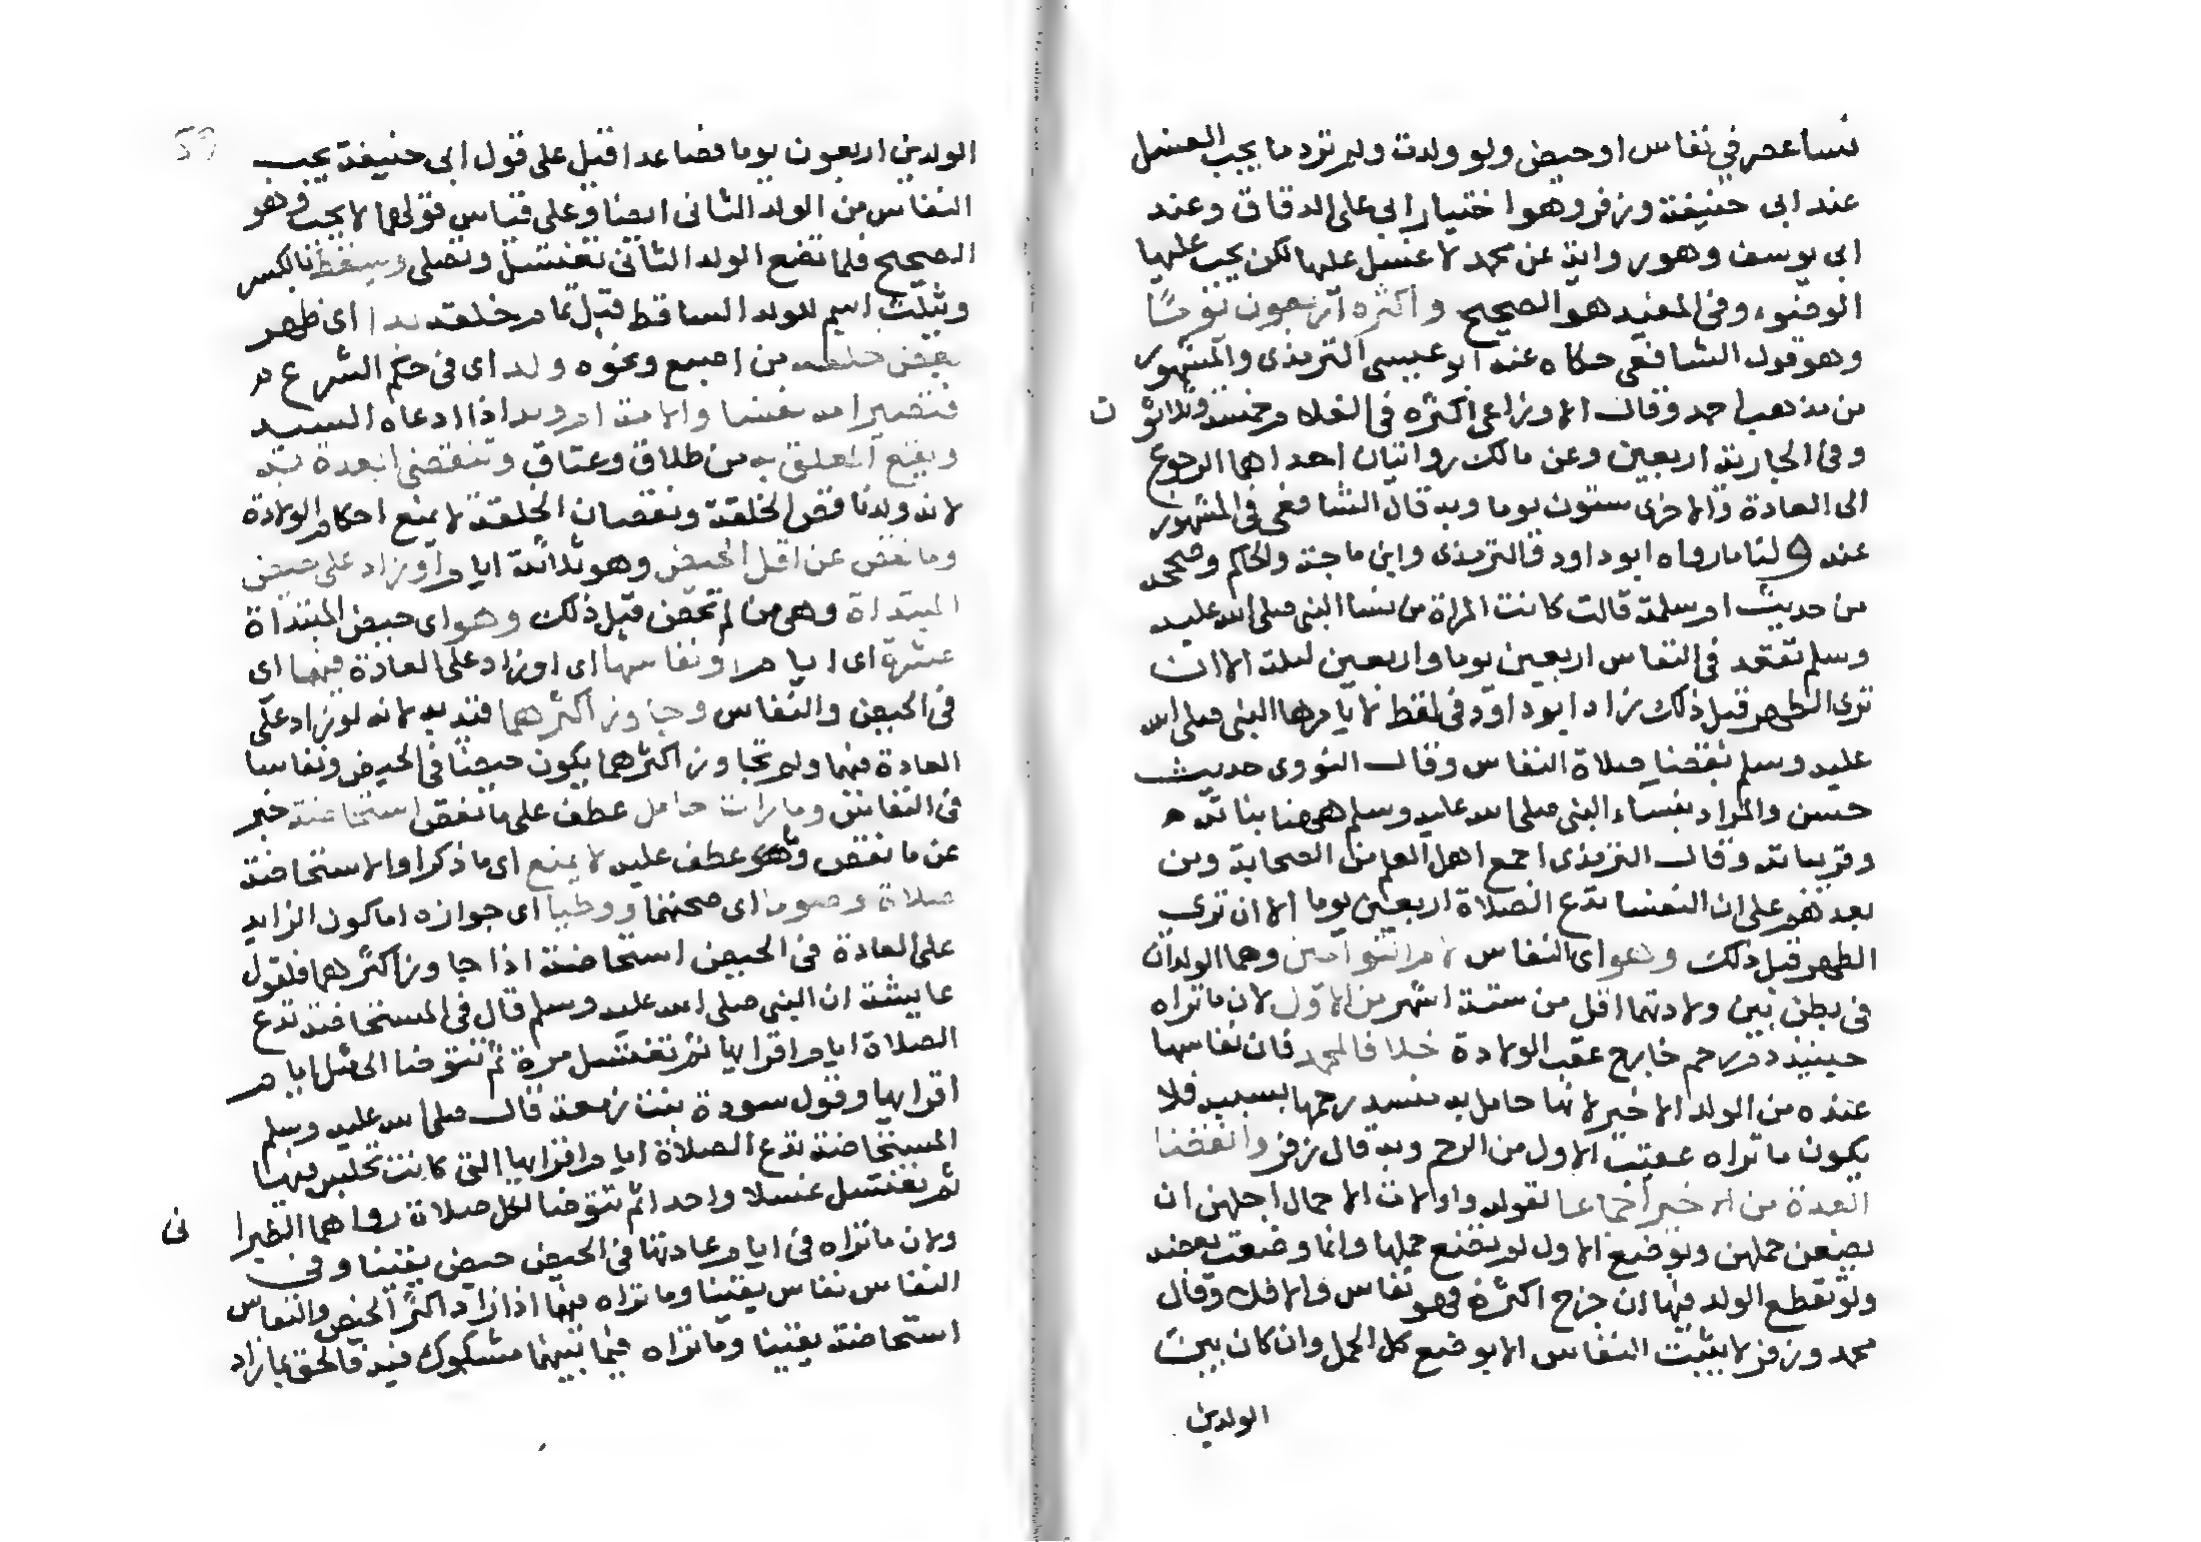 نساعصر في نفاس او حيض ولو ولدت ولم ترد ما يجب الغسل
عند ابى حنيفة وزفر وهو اختيار ابي على الدقاق وعند
ابى يوسف وهو رواية عن محمد لا غسل عليها لكن يجب عليها
الوضوء وفى المفيد هو الصحيح واكثره اربعون يومًا
وهو قول الشافعى حكاه عنه ابو عيسى الترمذى والمشهور
من مذهب احمد وقال الاوزاعى اكثره فى الغلام خمسة وثلاثو ن
وفى الجارية اربعين وعن مالك روايتان احداهما الرجوع
الى العادة والاخرى ستون يوما وبه قال الشافعى فى المشهور
عنه ولنا ما رواه ابو داود والترمذى وابن ماجة والحاكم وصححه
من حديث ام سلمة قالت كانت المراة من نسا النبى صلى الله عليه
وسلم تقعد فى النفاس اربعين يوما واربعين ليلة الا ان
ترى الطهر قبل ذلك زاد ابو داود فى لفظ لا يامرها النبى صلى الله
عليه وسلم بقضا صلاة النفاس وقال النووى حديث
حسن والمراد بنساء النبى صلى الله عليه وسلم ههنا بناته
وقريباته وقال الترمذى اجمع اهل العلم من الصحابة ومن
بعدهم على ان النفسا تدع الصلاة اربعين يوما الا ان ترى
الطهر قبل ذلك وهو اى النفاس لام التوامين وهما الولدان
فى بطن بين ولادتهما اقل من ستة اشهر من الاول لان ما تراه
حينيذ دم رحم خارج عقب الولادة خلافا لمحمد فان نفاسها
عنده من الولد الاخير لانها حامل به منسد رحمها بسببه فلا
يكون ما تراه عقيب الاول من الرحم وبه قال زفر وانقضا
العدة من الاخير اجماعا لقوله واولات الاحمال اجلهن ان
يضعن حملهن وبوضع الاول لم تضع حملها وانما وضعت بعضه
ولو تقطع الولد فيها ان خرج اكثره فهو نفاس والا فلا وقال
محمد وزفر لا يثبت النفاس الا بوضع كل الحمل وان كان بين
الولدين
الولدين اربعون يوما فصاعدا قيل على قول ابى حنيفة يجب
النفاس من الولد الثانى ايضا وعلى قياس قولهما لا يجب وهو
الصحيح فلما تضع الولد الثانى تغتسل وتصلى وسقط بالكسر
ويثلث اسم للولد الساقط قبل تمام خلقه بدا اى ظهر
بعض خلقه من اصبع ونحوه ولد اى فى حكم الشرع
فتصير امه نفسا والامة ام ولد اذا ادعاه السيد
ويقع المعلق به من طلاق وعتاق وتنقضى العدة به
لانه ولد ناقص الخلقة ونقصان الخلقة لا يمنع احكام الولادة
وما نقص عن اقل الحيض وهو ثلاثة ايام او زاد على حيض
المبتداة وهى من لم تحض قبل ذلك وهو اى حيض المبتداة
عشرة اى ايام او نفاسها اى او زاد على العادة فيهما اى
فى الحيض والنفاس وجاوز اكثرهما قيد به لانه لو زاد على
العادة فيهما ولم تجاوز اكثرهما يكون حيضا فى الحيض ونفاسا
فى النفاس وما رات حامل عطف على ما نقص استحاضة خبر
عن ما نقص وما هو عطف عليه لا يمنع اى ما ذكرا والاستحاضة
صلاة وصوما اى صحتهما ووطيا اى جوازه اما كون الزايد
على العادة فى الحيض استحاضة اذا جاوز اكثرهما فلقول
عايشة ان النبى صلى الله عليه وسلم قال فى المستحاضة تدع
الصلاة ايام اقرايها ثم تغتسل مرة ثم تتوضا الى مثل ايام
اقرايها وقول سودة بنت زمعة قال صلى الله عليه وسلم
المستحاضة تدع الصلاة ايام اقرايها التى كانت تجلس فيها
ثم تغتسل غسلا واحدا ثم تتوضا لكل صلاة رواهما الطبرا نى
ولان ما تراه فى ايام عادتها فى الحيض حيض يقينا وفى
النفاس نفاس يقينا وما تراه فيها اذا زاد اكثر الحيض والنفاس
استحاضة يقينا وما تراه فيما بينهما مشكوك فيه فالحق بما زاد